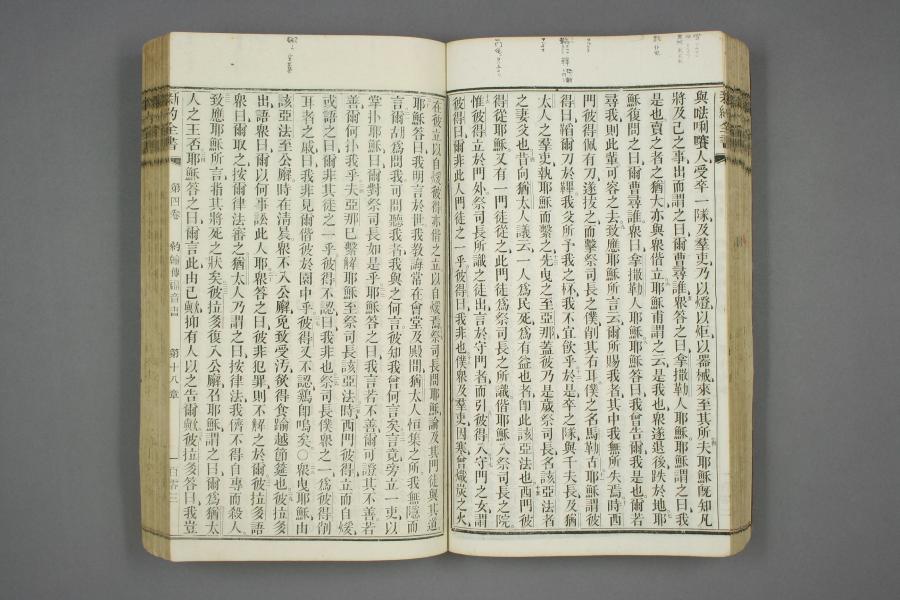 與㗳唎㘔人受卒一隊及羣吏乃以燈以炬以器械來至其所夫耶穌旣知凡
將及己之事出而謂之曰爾曹尋誰衆答之曰拿撒勒人耶穌耶穌謂之曰我
是也賣之者之猶大亦與衆偕立耶穌甫謂之云是我也衆遂退後跌於地耶
穌復問之曰爾曹尋誰衆曰拿撒勒人耶穌耶穌答曰我曾告爾我是也爾若
尋我則此輩可容之去致應耶穌所言云爾所賜我者其中我無所失焉時西
門彼得佩有刀遂拔之而擊祭司長之僕削其右耳僕之名馬勒古耶穌謂彼
得曰韜爾刀於鞞我父所予我之杯我不宜飲乎於是卒之隊與千夫長及猶
太人之羣吏執耶穌而繫之先曳之至亞那蓋彼乃是歲祭司長名該亞法者
之妻父也昔向猶太人議云一人爲民死爲有益也者卽此該亞法也西門彼
得從耶穌又有一門徒從之此門徒爲祭司長之所識偕耶穌入祭司長之院
惟彼得立於門外祭司長所識之徒出言於守門者而引彼得入守門之女謂
彼得曰爾非此人門徒之一乎彼得曰我非也僕衆及羣吏因寒會熾炭之火
在彼立以自煖彼得亦偕之立以自煖焉祭司長問耶穌諭及其門徒與其道
耶穌答曰我明言於世我教誨常在會堂及殿間猶太人恒集之所我無隱而
言爾胡爲問我可問聽我者我與之何言彼知我曾何言矣言竟旁立一吏以
掌扑耶穌曰爾對祭司長如是乎耶穌答之曰我言者不善爾可證其不善若
善爾何扑我乎夫亞那已繫解耶穌至祭司長該亞法時西門彼得立而自煖
或語之曰爾非其徒之一乎彼得不認曰我非也祭司長僕衆之一爲彼得削
耳者之戚曰我非見爾偕彼於園中乎彼得又不認鷄卽鳴矣○衆曳耶穌由
該亞法至公廨時在淸晨衆不入公廨免致受汚欲得食踰越節筵也彼拉多
出語衆曰爾以何事訟此人耶衆答之曰彼非犯罪則不解之於爾彼拉多語
衆曰爾取之按爾律法審之猶太人乃謂之曰按律法我儕不得自專而殺人
致應耶穌所言指其將死之狀矣彼拉多復入公廨召耶穌謂之曰爾爲猶太
人之王否耶穌答之曰爾言此由己歟抑有人以之告爾歟彼拉多答曰我豈
新約全書 第四卷 約翰傳福音書 第十八章 一百零三